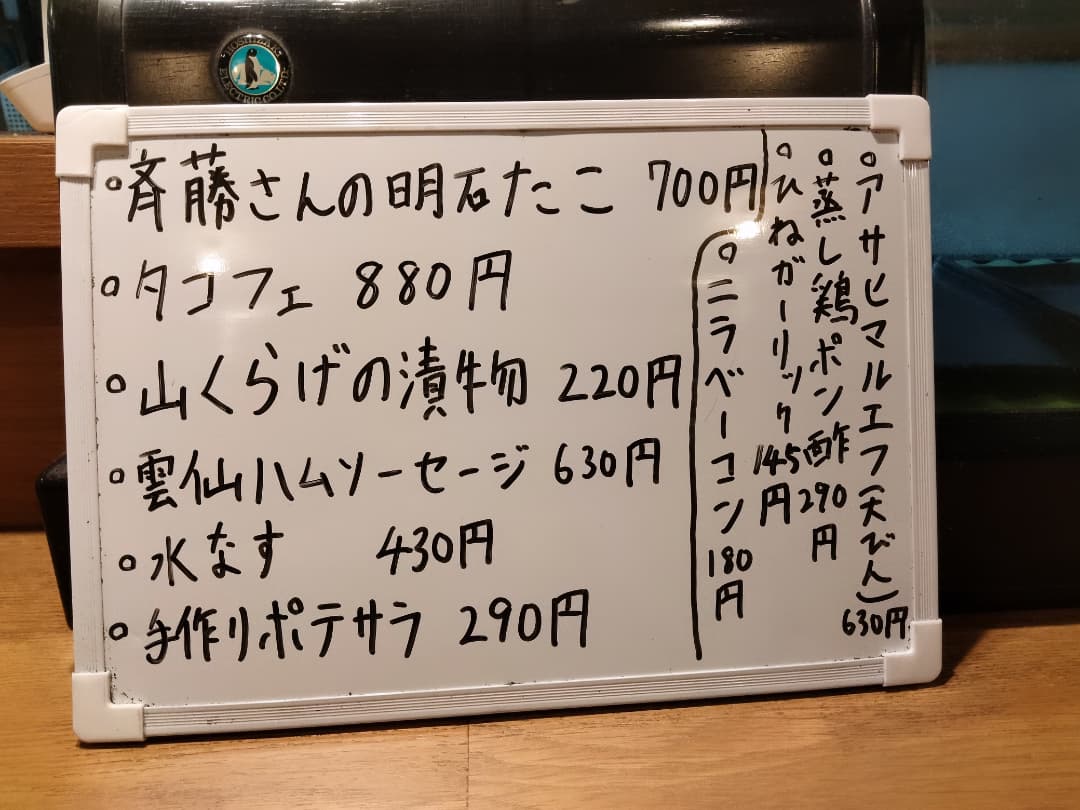 HOSHIZAKI ELECTRIC CO.LTD
○斉藤さんの明石たこ 700円
○タコフェ 880円
○山くらげの漬物 220円
○雲仙ハムソーセージ 630円
○水なす 430円
○手作りポテサラ 290円
○アサヒマルエフ(大びん)630円
○蒸し鶏ポン酢290円
○ひねガーリック145円
○ニラベーコン180円